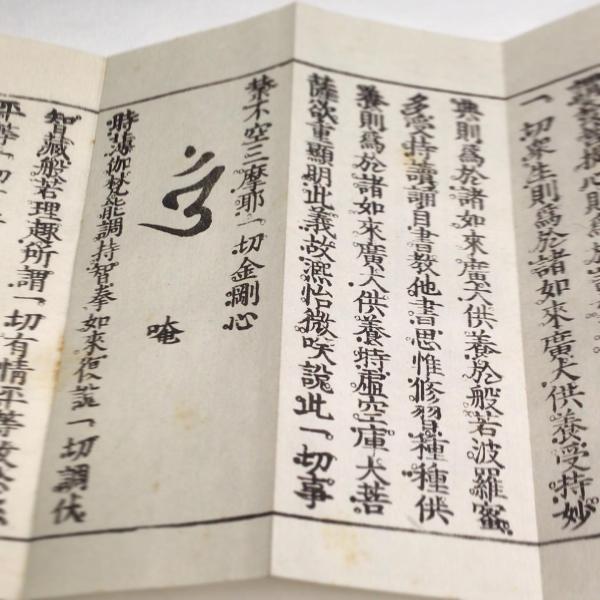 菩提心則爲於諸
一切衆生則爲於諸如來廣大供養受持妙
典則爲於諸如來廣大供養於般若波羅蜜
多受持讀誦自書教他書思惟修習種種供
養則爲於諸如來廣大供養時虛空庫大菩
薩欲重顯明此義故熙怡微咲說此一切事
業不空三摩耶一切金剛心
唵
時薄伽梵能調持智拳如來復說一切調伏
智藏般若理趣所謂一切有情平等故忿怒
平等一切